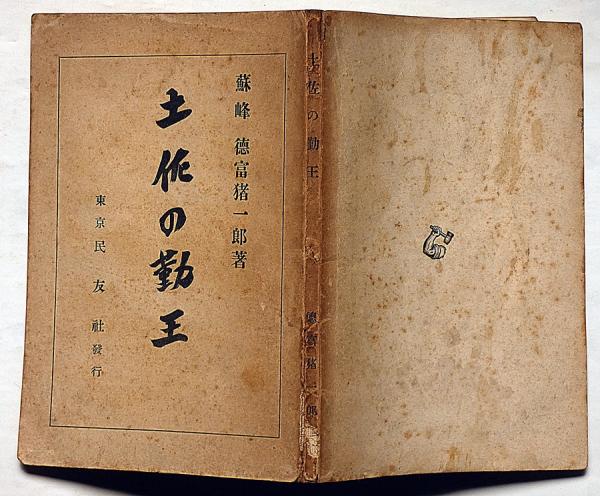 蘇峰 德富猪一郎著
土佐の勤王
東京民友社發行
土佐の勤王
德富猪一郎